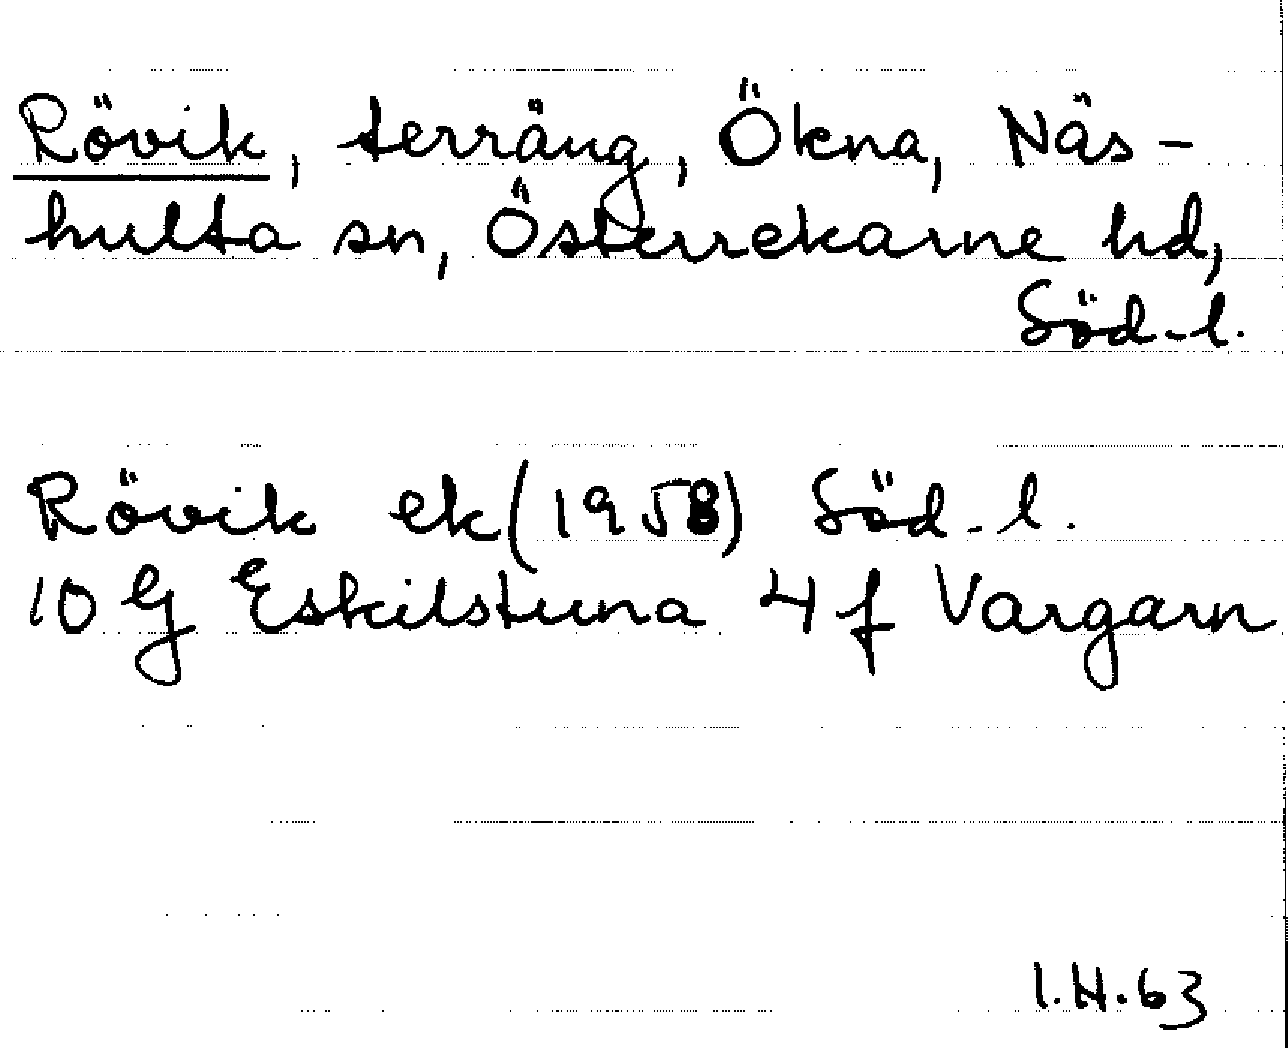 Rövik, terräng, Ökna, Näs-
hulta sn, Österrekarne hd,
Söd-l.
Rövik ek (1958) Söd-l.
10 G Eskilstuna 4 f Vargarn
I.H.63